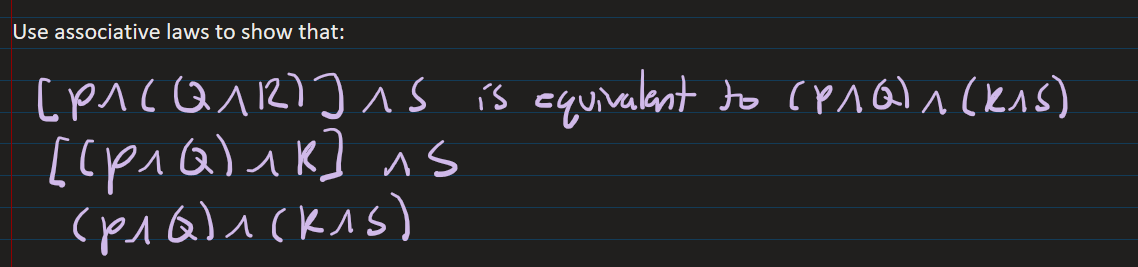 Use associative laws to show that:
[P∧(Q∧R)]∧S is equivalent to (P∧Q)∧(R∧S)
[(P∧Q)∧R]∧S
(P∧Q)∧(R∧S)